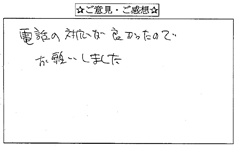 ☆ご意見・ご感想☆
電話の対応が良かったので
お願いしました